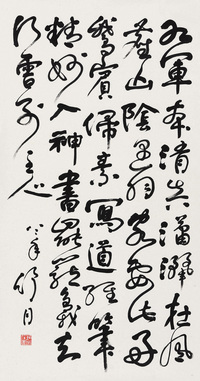 右軍本清真瀟灑在風
塵山陰遇羽客要此好
鵝賓掃素寫道經筆
精妙入神書罷籠鵝去
何曾別主人